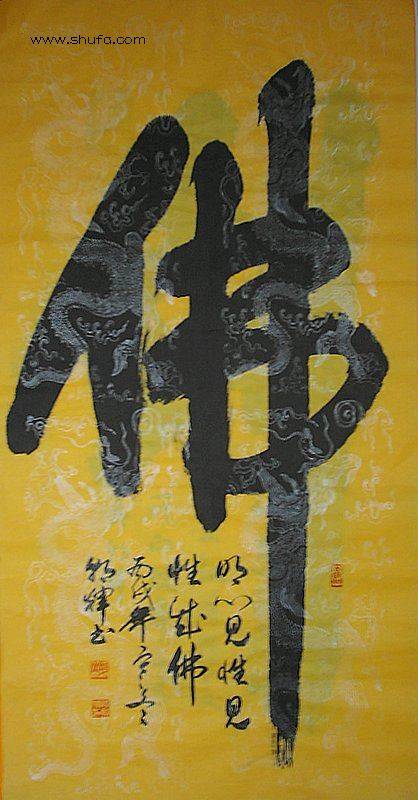 www.shufa.com
佛
明心见性见
性成佛
丙戌年冬
輝书